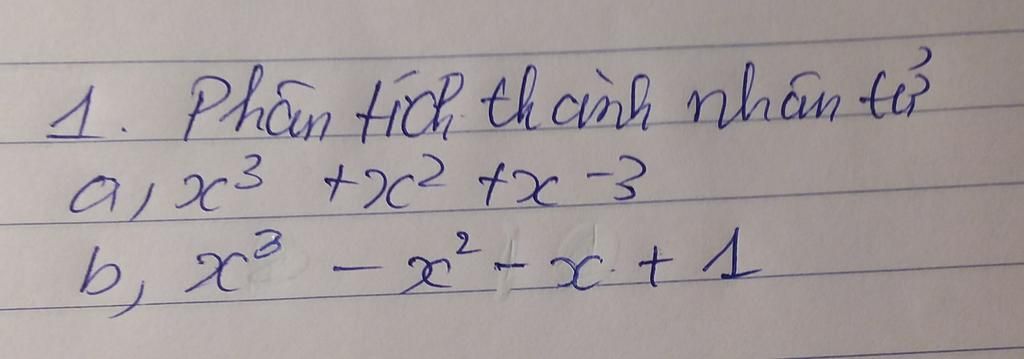 1. Phân tích thành nhân tử
a, x³ + x² + x - 3
b, x³ - x² - x + 1